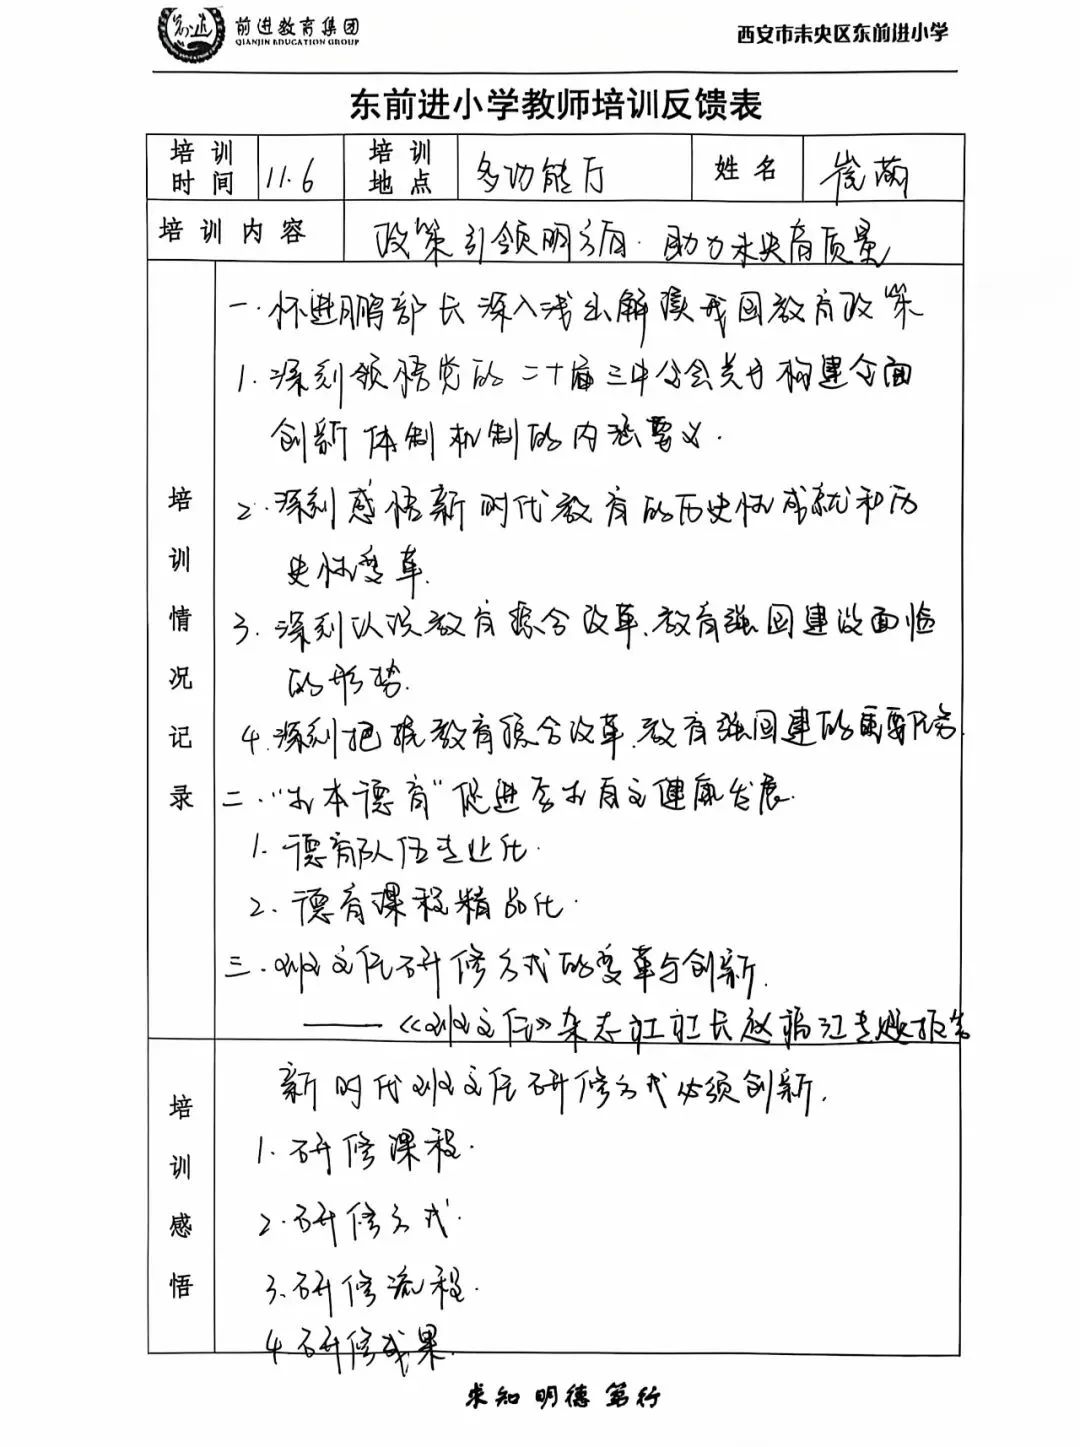 前进教育集团
QIANJIN EDUCATION GROUP
西安市未央区东前进小学
东前进小学教师培训反馈表
培训时间 11.6 培训地点 多功能厅 姓名 萌
培训内容 政策引领明方向·助力未央育质量
培训情况记录
一.怀进鹏部长深入浅出解读我国教育政策
1.深刻领悟党的二十届三中全会关于构建全面
创新体制机制的内涵要义.
2.深刻感悟新时代教育的历史性成就和历
史性变革.
3.深刻认识教育综合改革、教育强国建设面临
的形势.
4.深刻把握教育综合改革、教育强国建的重要任务.
二."生本德育"促进学生自主健康发展.
1.德育队伍专业化.
2.德育课程精品化.
三.班主任研修方式的变革与创新.
——《班主任》杂志社社长赵福江专题报告
培训感悟
新时代班主任研修方式必须创新.
1.研修课程.
2.研修方式.
3.研修流程.
4.研修成果.
求知 明德 笃行